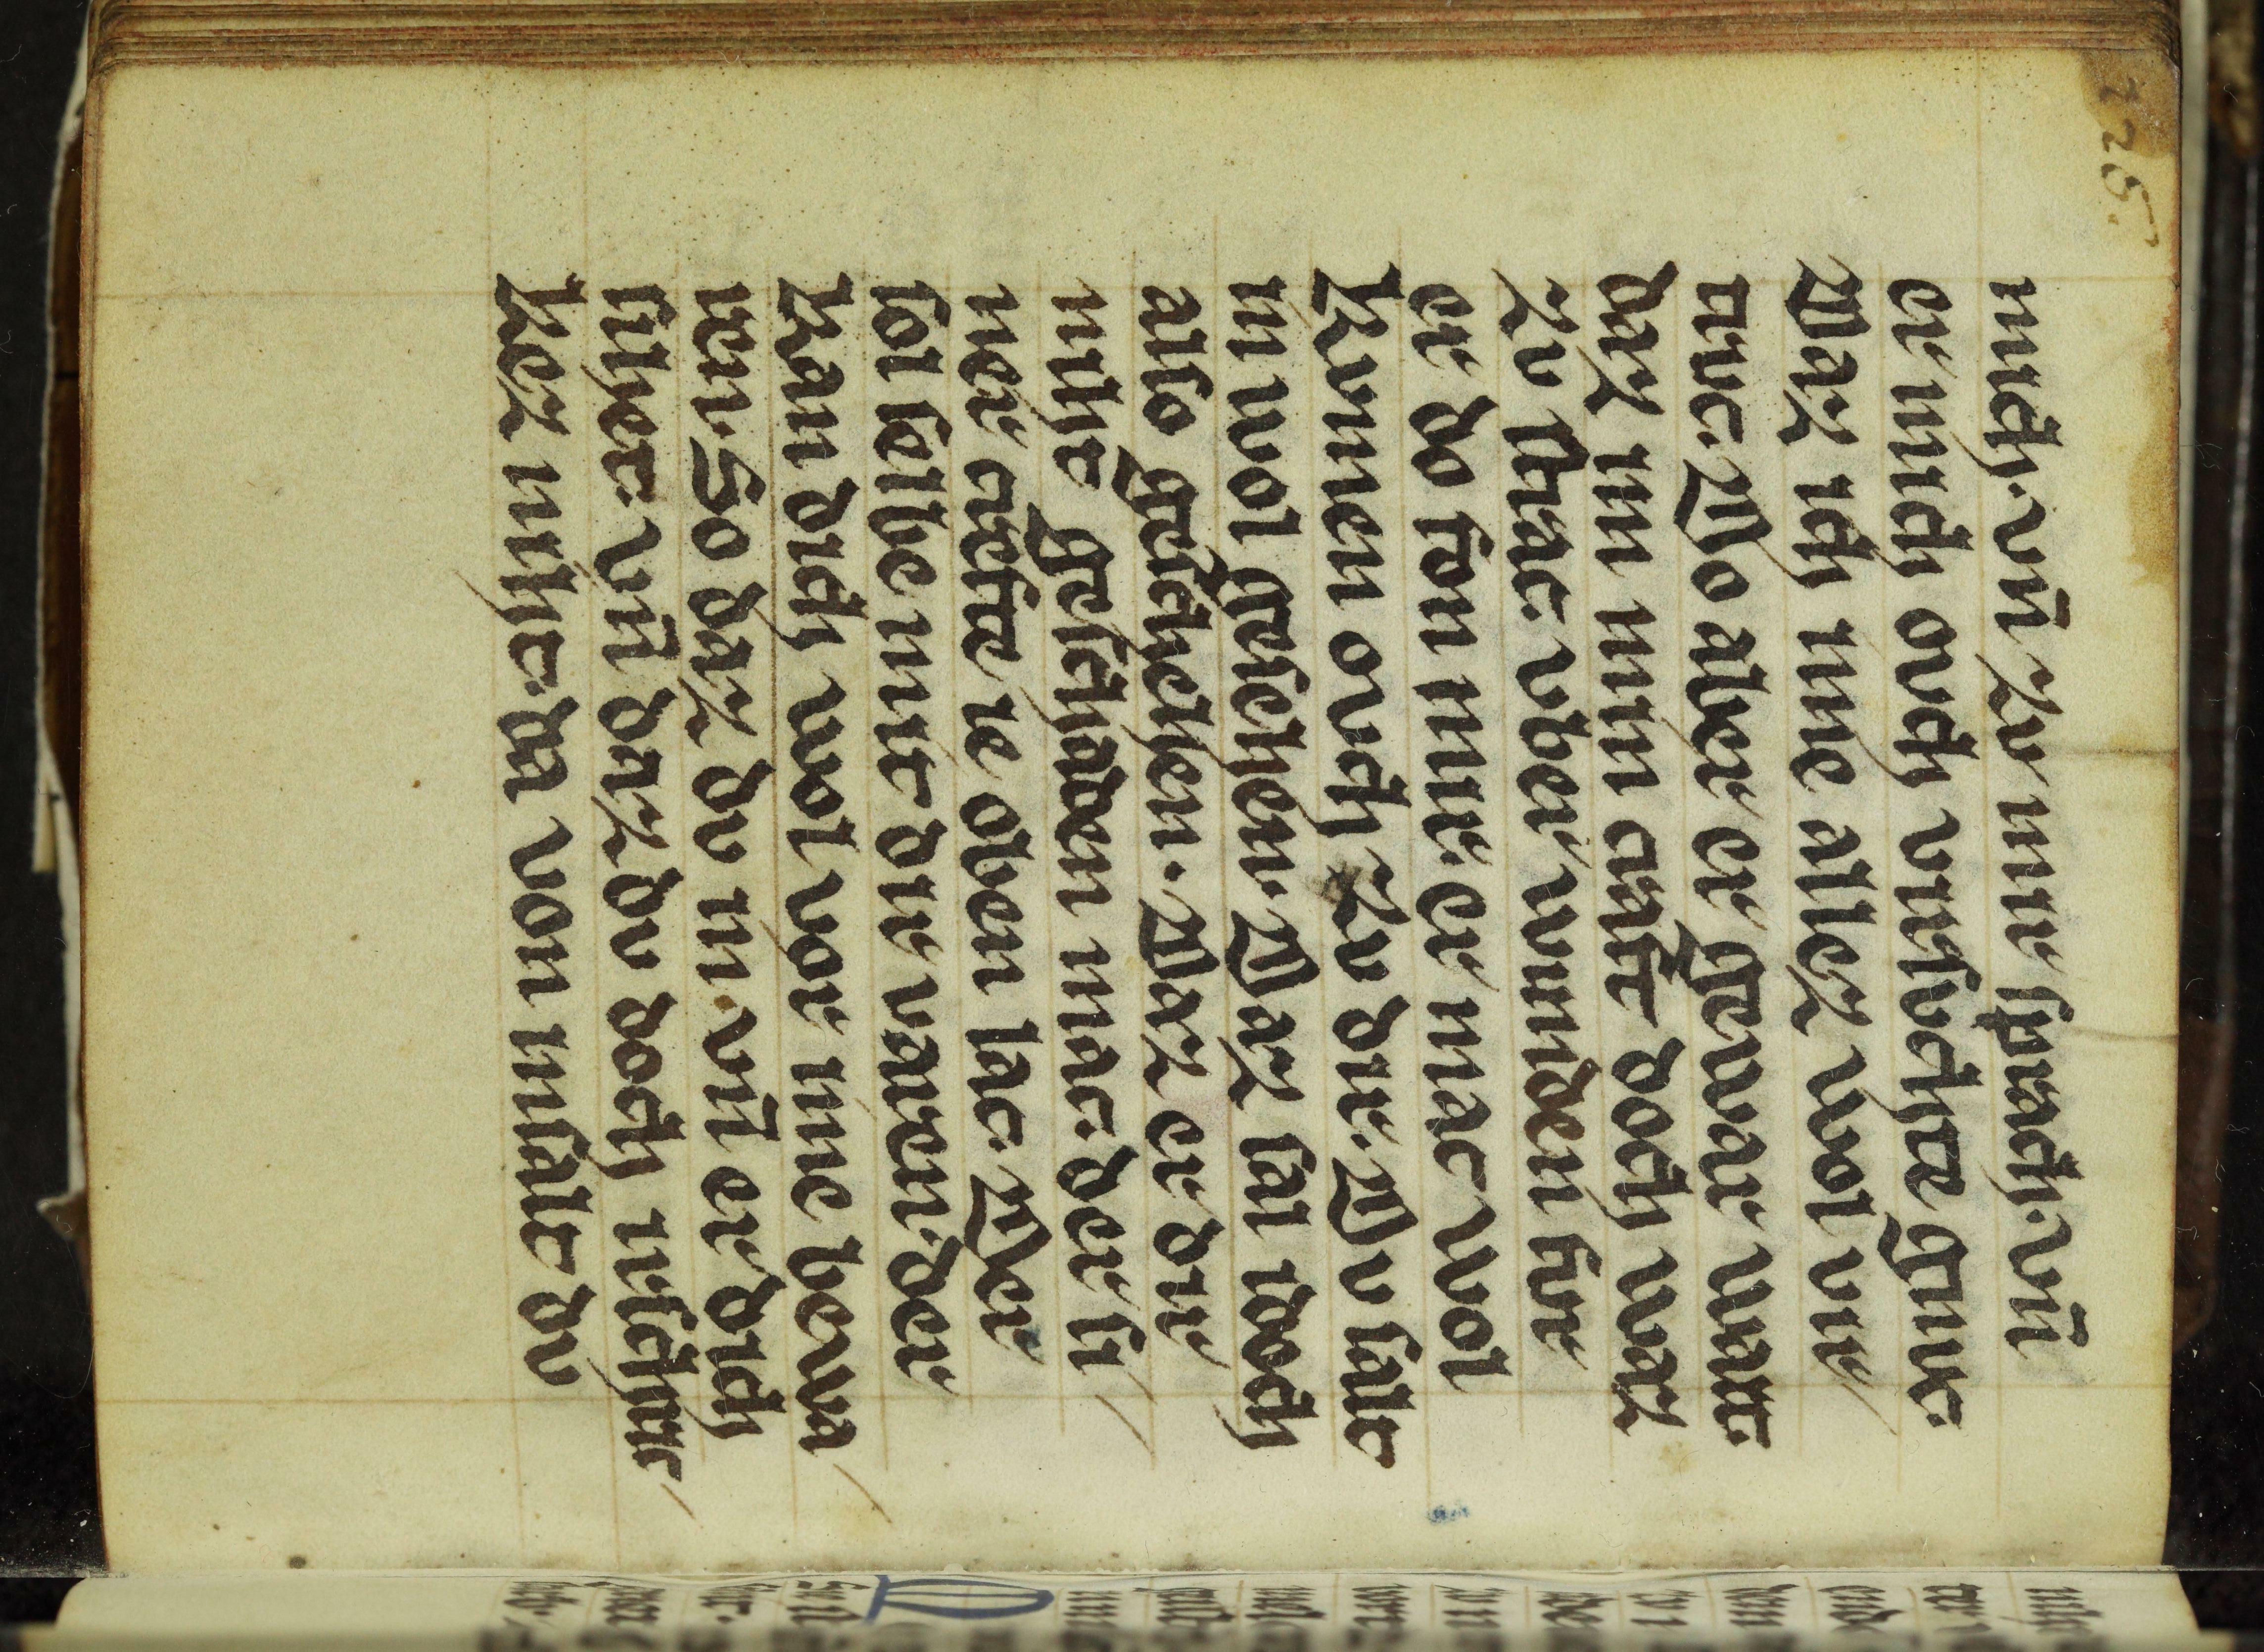 225.
mich. vn̄ zv mir sprach. vn̄
er mich ovch vursvchte gnvc.
Waz ich mir allez wol vur
trvc. Wo aber er gewar wart.
daz mi min craft doch waz
zv starc. vber wunden hie
er do son mir. er mac wol
komen ovch zv dir. Wv salt
in wol gesehen. Waz sal doch
also geschehen. Waz er dir
niht geschaden mac. der ſi
ner crefte ie oben lac. Wer
sol selbe mit dir varen. der
kan dich wol vor me bewa
ren. So daz dv in. vn̄ er dich
sihet. vn̄ daz dv doch irschric
kez niht. da von insalt dv